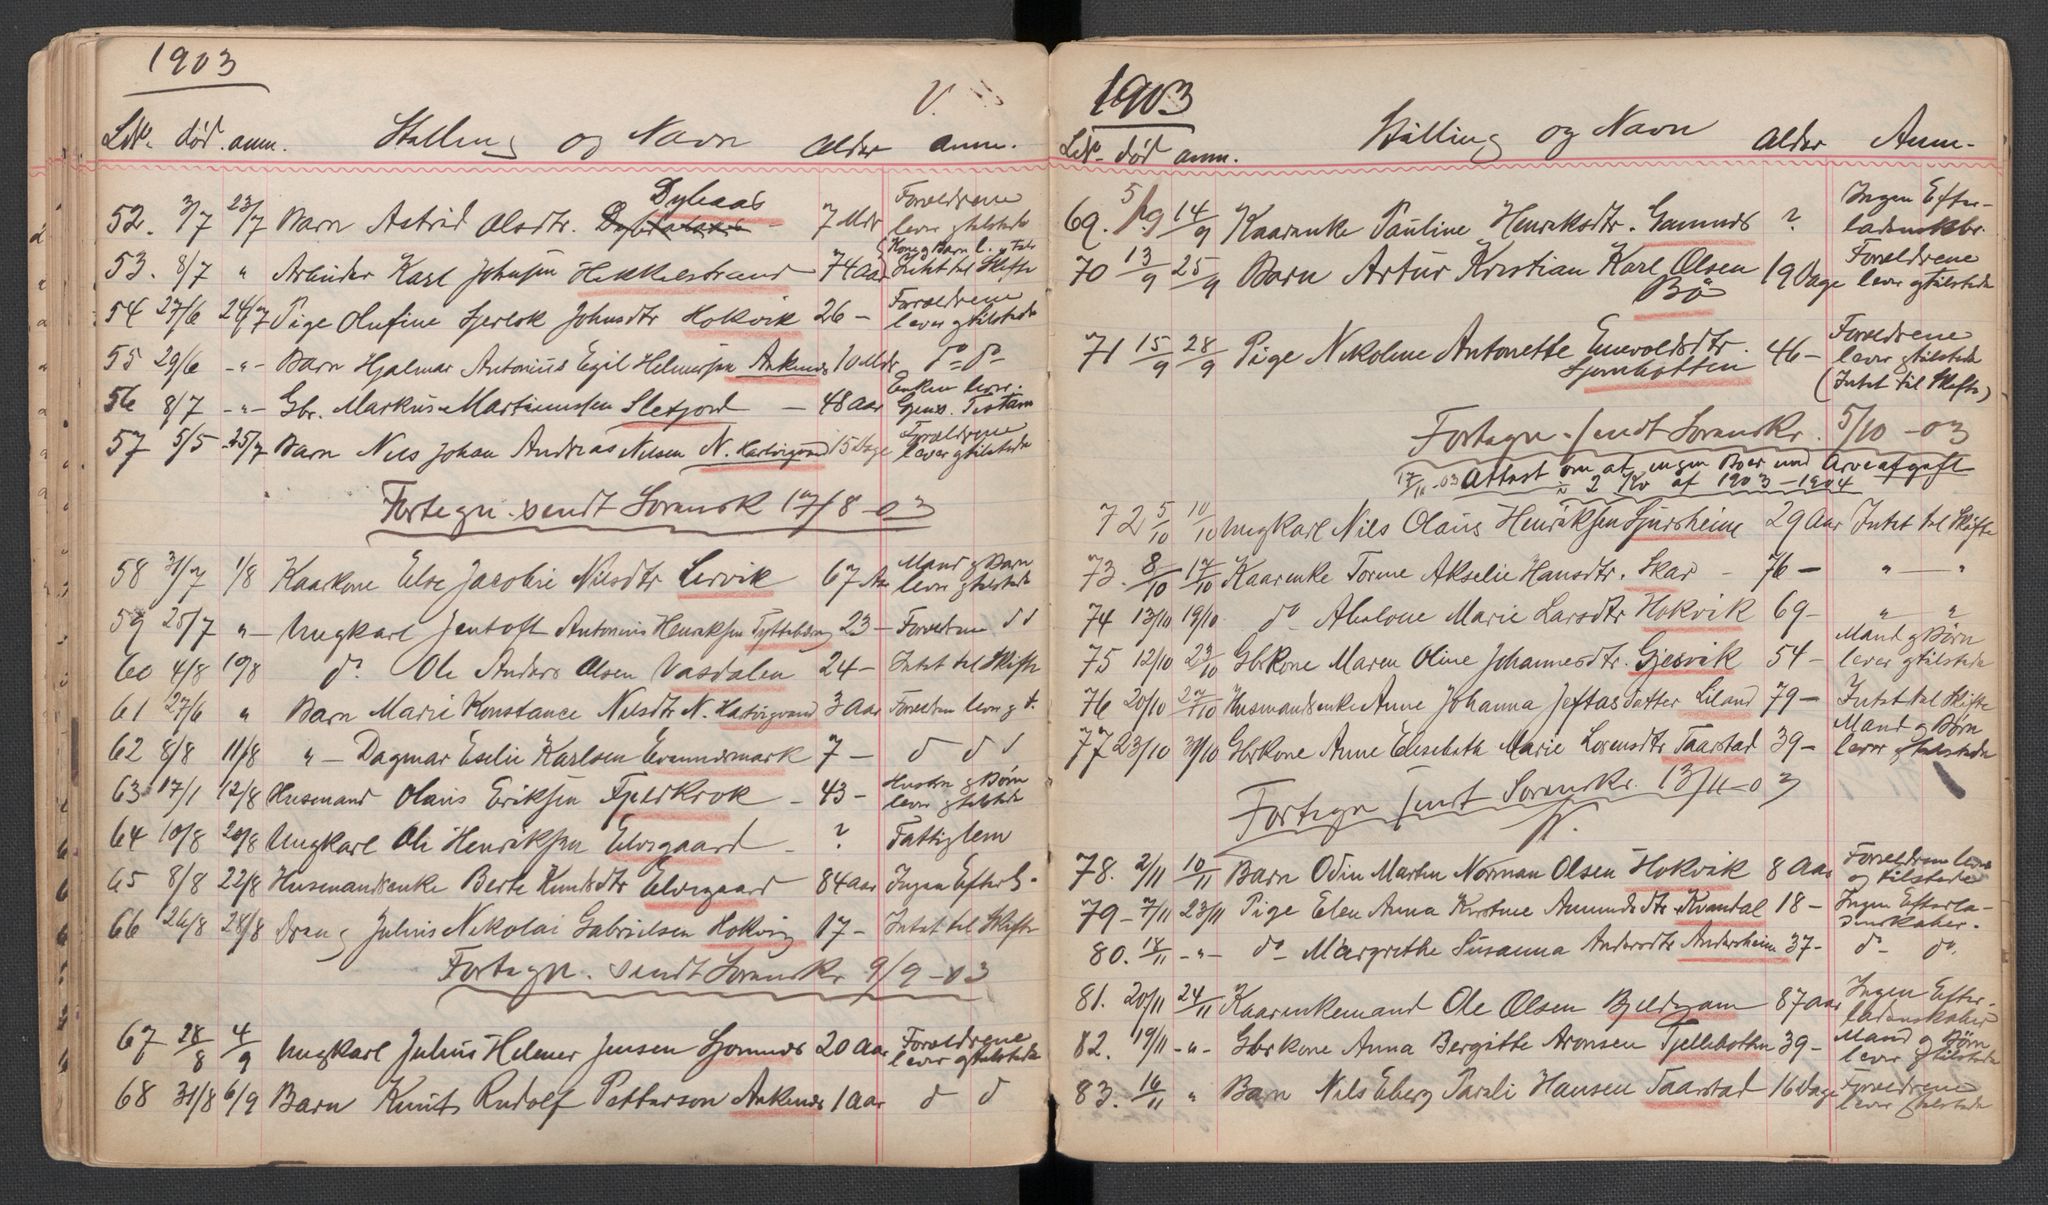 1903
LNo. død. anm. Stilling og Navn Alder anm.
52. 3/7 23/7 Barn Astrid Olsdtr. Dybaas 7 Mdr Forældrene lever gtilstede
53. 8/7 " Arbeider Karl Johnsen Hekkelstrand 74 Aar Kone og Barn l. og tilst. Intet til Skifte
54 27/6 24/7 Pige Olufine Johnsdtr Hokvik 26 - Forældrene lever gtilstede
55 29/6 -"- Barn Hjalmar Antonius Egil Helmersen Ankenes 10 Mdr do do
56 8/7 -"- Gbr. Markus Martinussen Sletjord - 48 Aar Enken lever. Gjens. Testam
57 5/5 25/7 Barn Nils Johan Andreas Nilsen N. Hartvigvand 15 Dage Forældrene lever gtilstede
Fortegn. sendt Sorensk 17/8 -03
58 31/7 1/8 Kaarkone Else Jacobine Nilsdtr Lervik 67 Aar Mand g Børn lever gtilstede
59 25/7 "- Ungkarl Jentoft Antonius Henriksen Tyttebærg 23 - Forældrene d d
60 4/8 10/8 do Ole Anders Olsen Vasdalen 24 - Intet til Skifte
61 27/6 " Barn Marie Konstance Nilsdtr N. Hartvigvand 3 Aar Forældrene lever g t.
62 8/8 11/8 "- Dagmar Eselie Karlsen Evenesmark 7 - d d d
63 17/1 12/8 Husmand Olaus Eriksen Fjeldkrok - 43 - Hustru g Børn lever gtilstede
64 10/8 20/8 Ungkarl Ole Henriksen Elvegaard - ? Fattiglem
65 8/8 22/8 Husmandsenke Berte Knudsdtr Elvegaard 84 Aar Ingen Efterl.
66 26/8 28/8 Dreng Julius Nikolai Gabrielsen Hokvig 17 - Intet til Skifte
Fortegn. sendt Sorenskr. 9/9 -03
67 28/8 4/9 Ungkarl Julius Helmer Jensen 20 Aar Forældrene lever gtilstede
68 31/8 6/9 Barn Knut Rudolf Petterson Ankenes 1 Aar d d
1903
LNo. død anm. Stilling og Navn Alder Anm.
69. 5/9 14/9 Kaarenke Pauline Henriksdtr. ? Ingen Efterladenskbr.
70 13/9 25/9 Barn Artur Kristian Karl Olsen Bø 19 Dage Forældrene lever gtilstede
71 15/9 28/9 Pige Nikoline Antonette Enevoldsdtr. Sjombotten 46 - Forældrene lever gtilstede (Intet til Skifte)
Fortegn. sendt Sorenskr. 5/10 -03
17/11 -03 Attest om at ingen Boer med Arveafgift i 2 Kv af 1903-1904
72 5/10 10/10 Ungkarl Nils Olaus Henriksen Sjursheim 29 Aar Intet til Skifte
73. 8/10 17/10 Kaarenke Torine Akselie Hansdtr. Skar - 76 - " "
74 13/10 19/10 do Abelone Marie Larsdtr Hokvik 69 - " "
75 12/10 23/10 Gbrkone Maren Oline Johannesdtr. Gjesvik 54 - Mand g Børn lever gtilstede
76 20/10 27/10 Husmandsenke Anne Johanna Jeftasdatter Liland 79 - Intet til Skifte
77 23/10 31/10 Gbrkone Anne Elisebeth Marie Lorensdtr Taarstad 39 - Mand g Børn lever gtilstede
Fortegn sendt Sorenskr. 13/11 -03
78. 2/11 10/11 Barn Odin Martin Norman Olsen Hokvik 8 Aar Forældrene lever og tilstede
79 - 7/11 23/11 Pige Elen Anna Kirstine Amundsdtr Kvandal 18 - Ingen Efterladenskaber.
80. 18/11 -"- do Margrethe Susanna Andersdtr Andersheim 37 - do do.
81. 20/11 24/11 Kaarenkemand Ole Olsen 87 Aar Ingen Efterladenskaber
82. 19/11 -"- Gbrkone Anna Bergitte Aronsen Tjellebotten 39 - Mand g Børn lever gtilstede
83. 16/11 " Barn Nils Eberg Pareli Hansen Taarstad 16 Dage Forældrene lever gtilstede